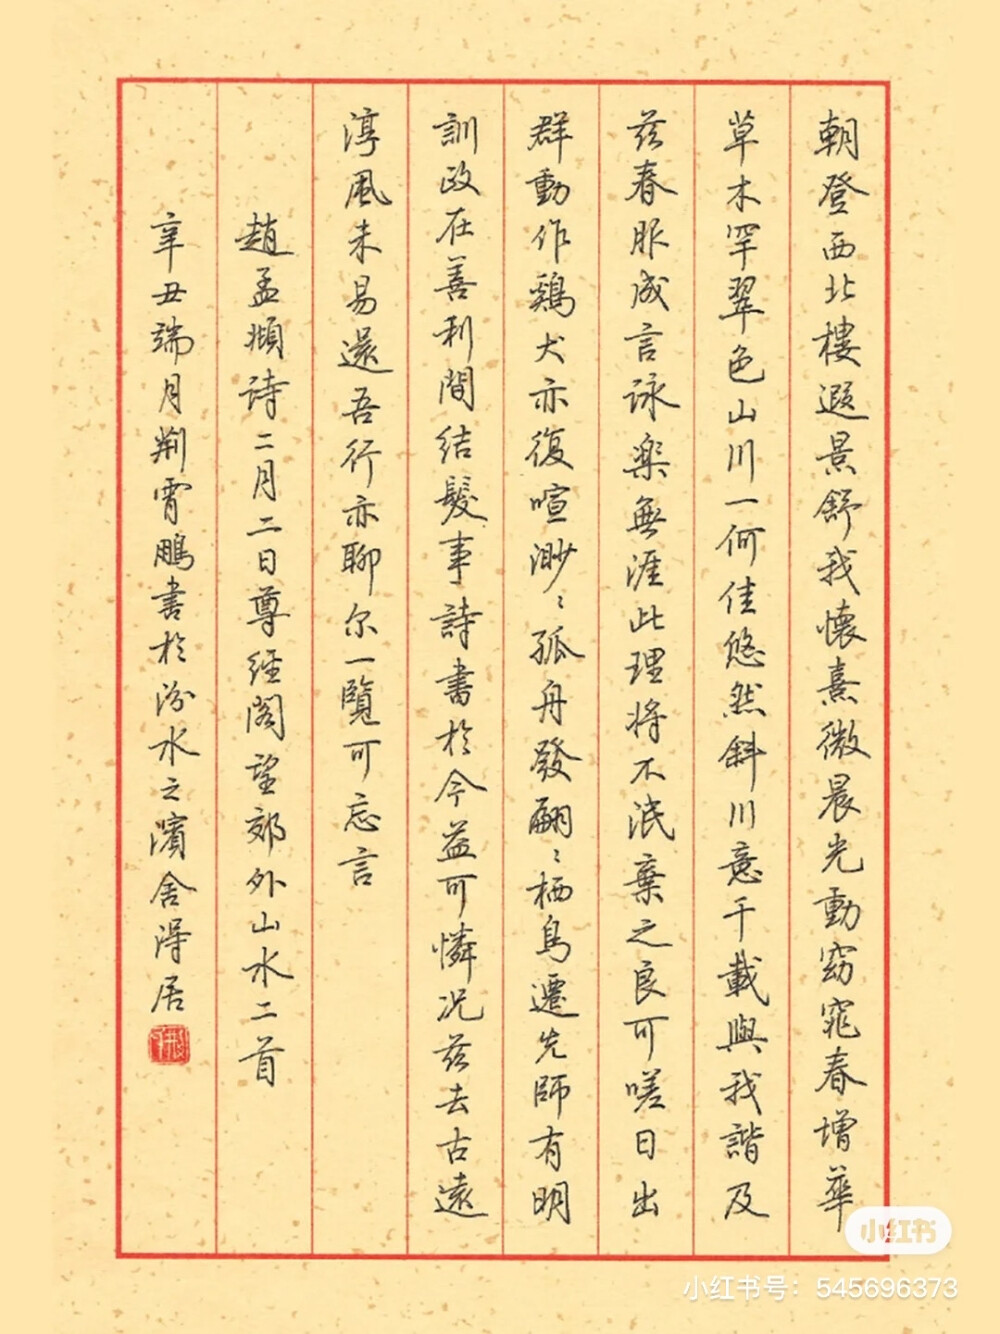 朝登西北樓遐景舒我懷熹微晨光動窈窕春增華
草木罕翠色山川一何佳悠然斜川意千載與我諧及
茲春服成言詠樂無涯此理將不泯棄之良可嗟日出
群動作鷄犬亦復喧渺〻孤舟發翩〻栖鳥遷先師有明
訓政在善利間結髮事詩書於今益可憐況茲去古遠
淳風未易還吾行亦聊尔一覽可忘言
趙孟頫詩二月二日尊經閣望郊外山水二首
辛丑端月荆霄鵬書於汾水之濱舍得居
小红书
小红书号：545696373